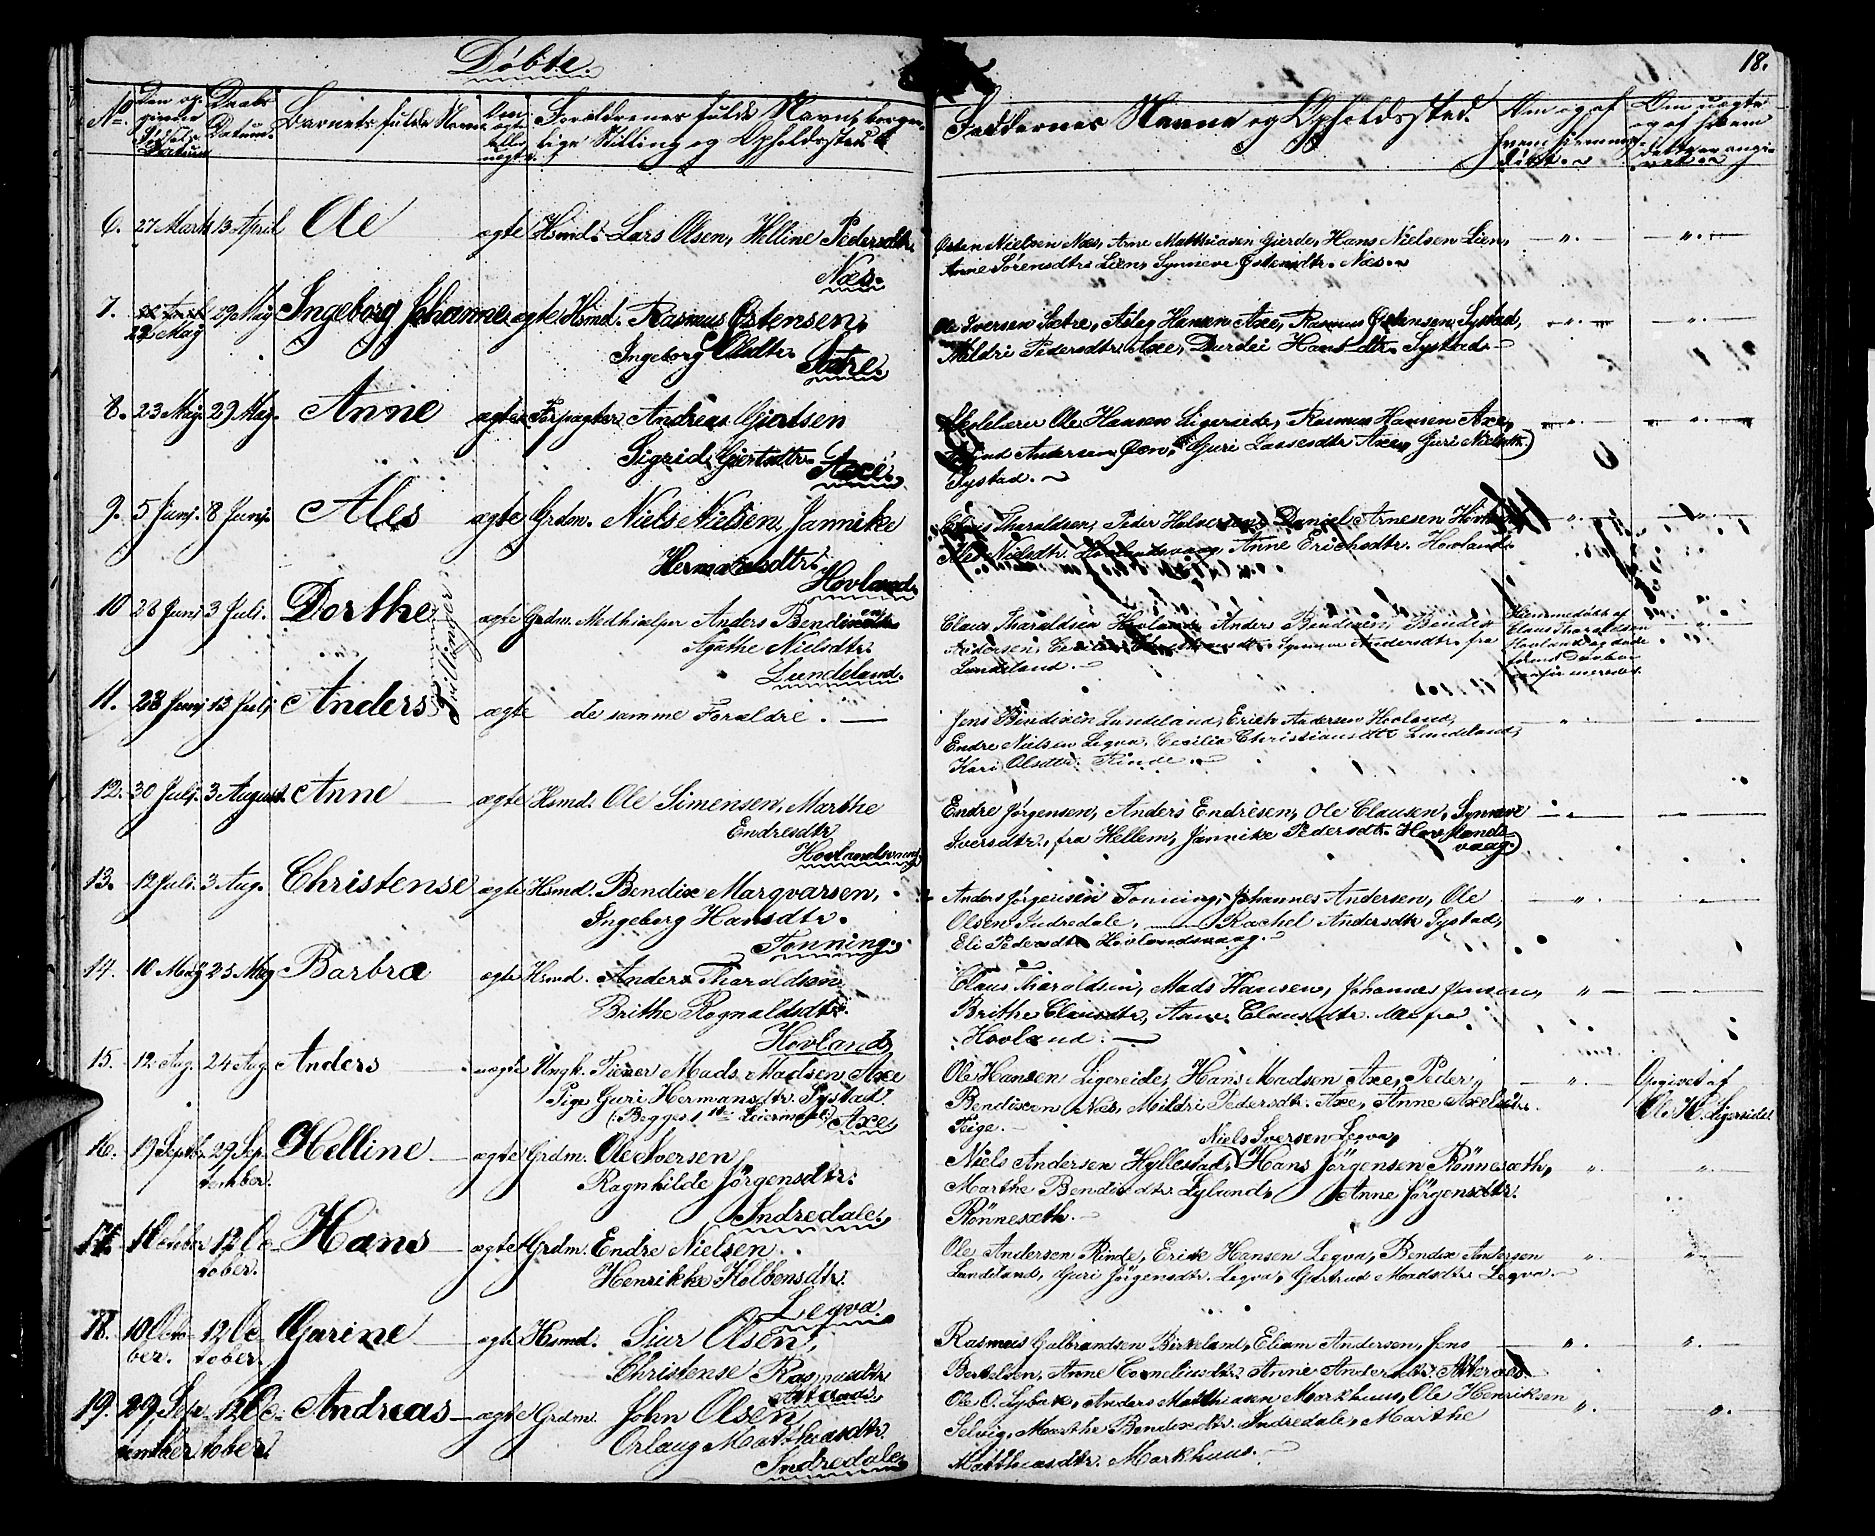 Døbte.
18.
No. Den opgivne Fødsels Datum. Daabs Datum. Barnets fulde Navn. Om ægte eller uægte. Forældrenes fulde Navn, borgerlige Stilling og Opholdssted. Faddernes Navne og Opholdssted. Om og af hvem hjemmedøbt. Om uægte og af hvem dette er angivet.
6. 27 Marts 13 April Ole ægte Hsmd. Lars Olsen, Helline Pedersdtr.
Næs.
Østen Nielsen Næs, Arne Matthiasen Gjerde, Hans Nielsen Lien,
Anne Sørensdtr. Lien, Synneve Østensdtr. Næs.
7. 22 May 29 May Ingeborg Johanne ægte Hsmd. Rasmus Østensen,
Ingeborg Olsdtr.
Sætre.
Ole Iversen Sætre, Aslag Hansen Axe, Rasmus Østensen Systad,
Mildri Pedersdtr. Axe, Durdei Hansdtr. Systad.
8. 23 May 29 May. Anne ægte Forpagter Andreas Gjertsen
Sigrid Gjertsdtr.
Axe.
Skolelærer Ole Hansen Ligereide, Rasmus Hansen Axe,
Andersen Qon, Guri Lassesdtr. Axe, Guri Nielsdtr.
Systad.
9. 5 Junj. 8 Junj. Ales ægte Grdm. Niels Nielsen, Jannike
Hermansdtr.
Hovland.
Claus Tharaldsen, Peder Halvorsen, Daniel Arnesen Hovland
Ales Nielsdtr. Hovlandsvaag, Anne Erichsdtr. Hovland.
10 28 Junj 3 Juli. Dorthe ægte Grdm. Medhjælper Anders Bendixen
Agathe Nielsdtr.
Lundeland.
Tvillinger
Claus Tharaldsen Hovland, Anders Bendixen, Bendix
Andersen, Cecilia Christiansdtr. Synneve Andersdtr. fra
Lundeland.
Hjemmedøbt af
Claus Tharaldsen
Hovland og dette
11. 28 Junj 13 Julj Anders ægte de samme Forældre.
Jens Bendixen Lundeland, Erich Andersen Hovland,
Endre Nielsen Leqva, Cecilia Christiansdtr. Lundeland,
Kari Olsdtr. Rinde.
12. 30 Julj. 3 August. Anne ægte Hsmd. Ole Simensen, Marthe
Endresdtr.
Hovlandsvaag
Endre Jørgensen, Anders Endresen, Ole Clausen, Synneve
Iversdtr., fra Hellem, Jannike Pedersdtr. Hovlands-
vaag
13. 12 Juli. 3 Aug. Christense ægte Hsmd. Bendix Marqvarsen,
Ingeborg Hansdtr.
Tonning.
Anders Jørgensen Tonning, Johannes Andersen, Ole
Olsen Indredale, Rachel Andersdtr Systad,
Eli Pedersdtr. Hovlandsvaag.
14. 10 May 25 May Barbra ægte Hsmd. Anders Tharaldsen
Brithe Rognaldsdtr.
Hovland
Claus Tharaldsen, Mads Hansen, Johannes Jensen,
Brithe Clausdtr, Anne Clausdtr. Alle fra
Hovland.
15. 12 Aug. 24 Aug Anders uægte Ungk. Tjener Mads Madsen Axe
Pige Guri Hermansdtr. Systad
(Begges 1ste Leiermaal) Axe
Ole Hansen Ligereide, Hans Madsen Axe, Peder
Bendixen Næs, Mildri Pedersdtr. Axe, Anne Axelsdtr.
Pige.
Opgivet af
Ole H. Ligereide
16. 19 Septbr. 29 September. Helline ægte Grdm. Ole Iversen,
Ragnhilde Jørgensdtr.
Indredale.
Niels Iversen Leqva,
Niels Andersen Hyllestad, Hans Jørgensen Rønnesæth,
Marthe Bendixdtr. Sylund, Anne Jørgensdtr.
Rønnesæth.
17. 1 October 12 October. Hans ægte Grdm. Endre Nielsen
Henrikke Kolbensdtr.
Leqva.
Ole Andersen Rinde, Erik Hansen Leqva, Bendix Andersen
Lundeland, Guri Jørgensdtr. Leqva, Gjertrud Madsdtr. Leqva.
18. 10 October. 12 October. Garine ægte Hsmd. Siur Olsen,
Christense Rasmusdtr
Atteraas.
Rasmus Gulbrandsen Birkeland, Eliam Andersen, Jens
Bertelsen, Anne Corneliusdtr. Anne Andersdtr. Atteraas
19. 29 September 12 October. Andreas ægte Grdm. John Olsen,
Orlaug Matthiasdtr.
Indredale
Ole O. Sybak, Anders Matthiasen Markhuus, Ole Henriksen
Selvig, Marthe Bendixdtr. Indredale, Marthe
Matthiasdtr. Markhuus.